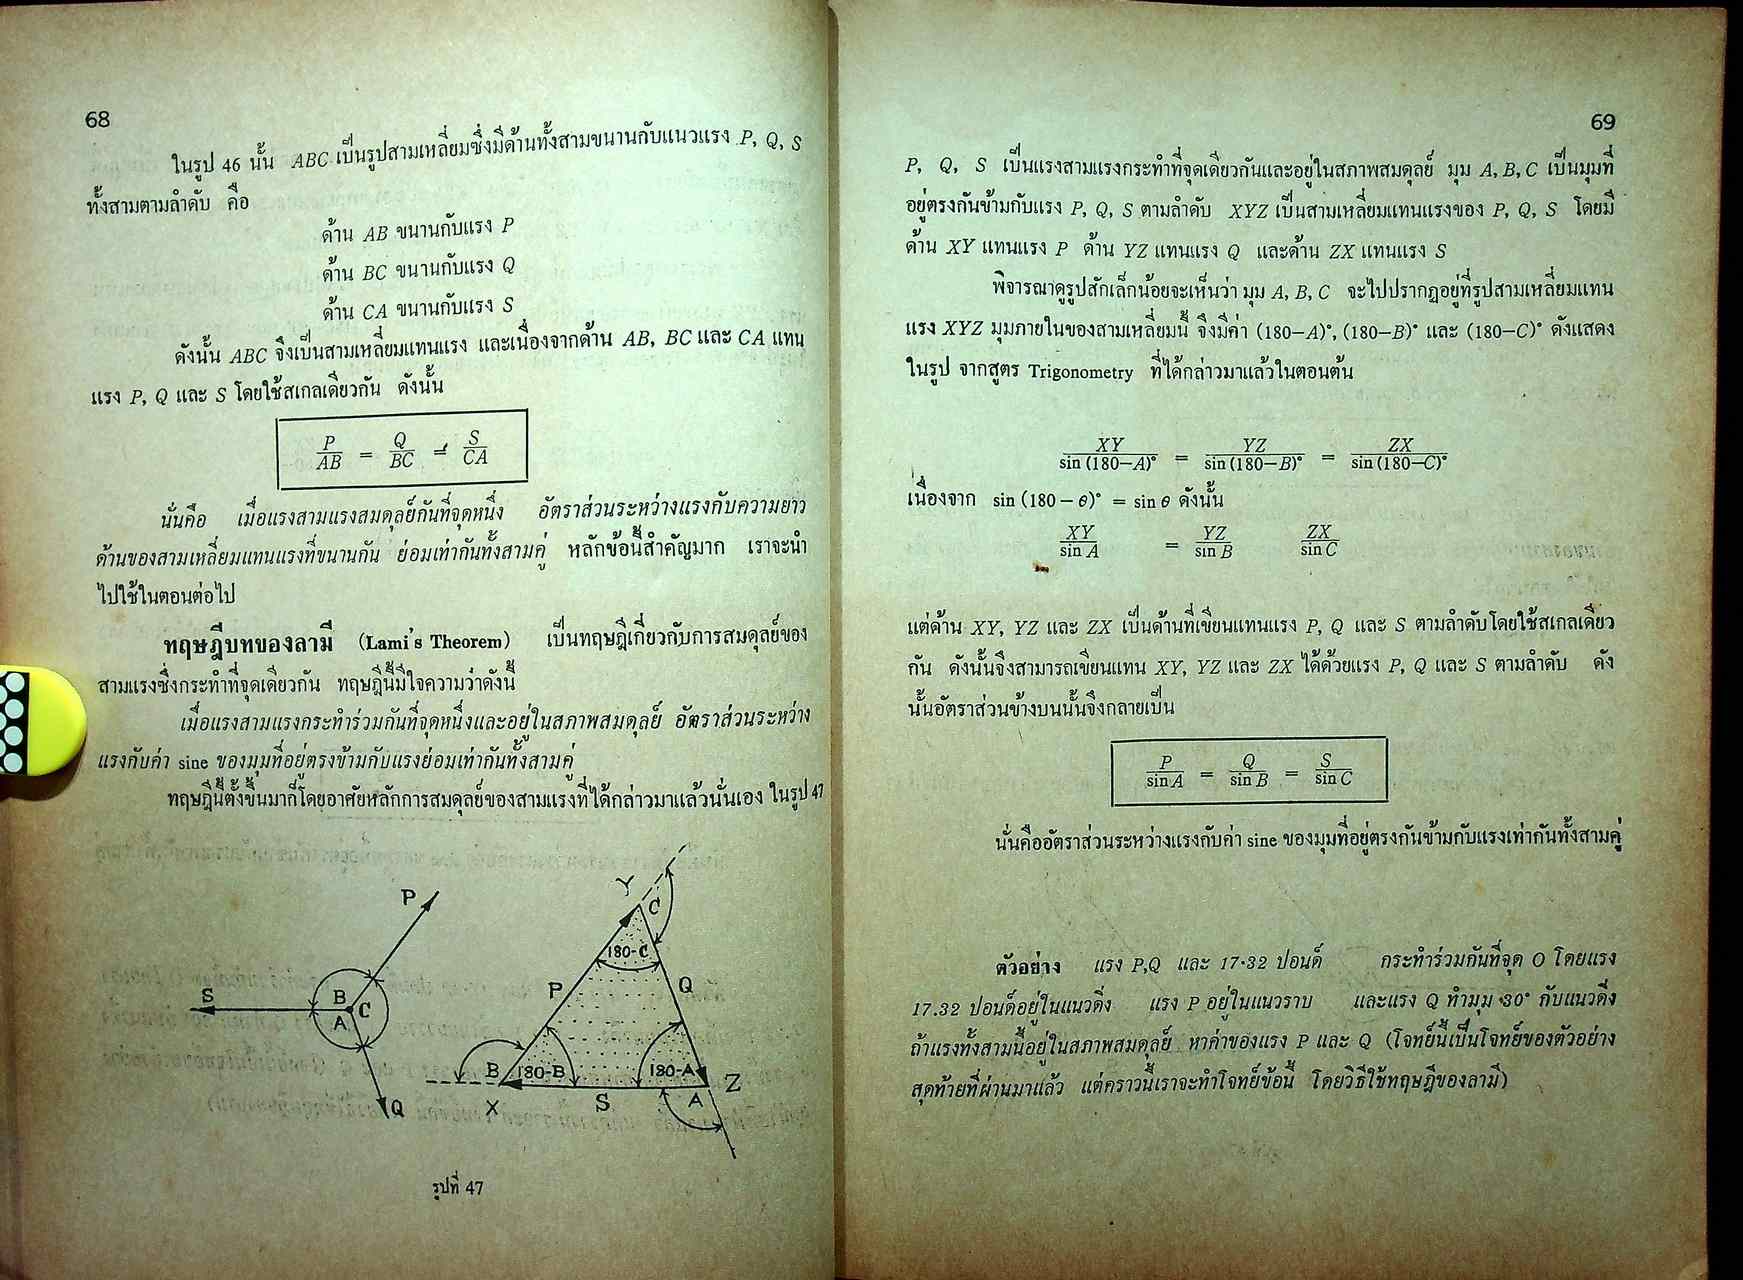 68
ในรูป 46 นั้น ABC เป็นรูปสามเหลี่ยมซึ่งมีด้านทั้งสามขนานกับแนวแรง P, Q, S
ทั้งสามตามลำดับ คือ
ด้าน AB ขนานกับแรง P
ด้าน BC ขนานกับแรง Q
ด้าน CA ขนานกับแรง S
ดังนั้น ABC จึงเป็นสามเหลี่ยมแทนแรง และเนื่องจากด้าน AB, BC และ CA แทน
แรง P, Q และ S โดยใช้สเกลเดียวกัน ดังนั้น
P/AB = Q/BC = S/CA
นั่นคือ เมื่อแรงสามแรงสมดุลย์กันที่จุดหนึ่ง อัตราส่วนระหว่างแรงกับความยาว
ด้านของสามเหลี่ยมแทนแรงที่ขนานกัน ย่อมเท่ากันทั้งสามคู่ หลักข้อนี้สำคัญมาก เราจะนำ
ไปใช้ในตอนต่อไป
ทฤษฎีบทของลามี (Lami's Theorem) เป็นทฤษฎีเกี่ยวกับการสมดุลย์ของ
สามแรงซึ่งกระทำที่จุดเดียวกัน ทฤษฎีนี้มีใจความว่าดังนี้
เมื่อแรงสามแรงกระทำร่วมกันที่จุดหนึ่งและอยู่ในสภาพสมดุลย์ อัตราส่วนระหว่าง
แรงกับค่า sine ของมุมที่อยู่ตรงข้ามกับแรงย่อมเท่ากันทั้งสามคู่
ทฤษฎีนี้ตั้งขึ้นมาก็โดยอาศัยหลักการสมดุลย์ของสามแรงที่ได้กล่าวมาแล้วนั่นเอง ในรูป 47
P
S
B
C
A
Q
Y
C
180-C
P
Q
B
180-B
180-A
Z
X
S
A
รูปที่ 47
69
P, Q, S เป็นแรงสามแรงกระทำที่จุดเดียวกันและอยู่ในสภาพสมดุลย์ มุม A, B, C เป็นมุมที่
อยู่ตรงกันข้ามกับแรง P, Q, S ตามลำดับ XYZ เป็นสามเหลี่ยมแทนแรงของ P, Q, S โดยมี
ด้าน XY แทนแรง P ด้าน YZ แทนแรง Q และด้าน ZX แทนแรง S
พิจารณาดูรูปสักเล็กน้อยจะเห็นว่า มุม A, B, C จะไปปรากฏอยู่ที่รูปสามเหลี่ยมแทน
แรง XYZ มุมภายในของสามเหลี่ยมนี้ จึงมีค่า (180–A)°, (180–B)° และ (180–C)° ดังแสดง
ในรูป จากสูตร Trigonometry ที่ได้กล่าวมาแล้วในตอนต้น
XY/sin (180–A)° = YZ/sin (180–B)° = ZX/sin (180–C)°
เนื่องจาก sin (180 – θ)° = sin θ ดังนั้น
XY/sin A = YZ/sin B ZX/sin C
แต่ด้าน XY, YZ และ ZX เป็นด้านที่เขียนแทนแรง P, Q และ S ตามลำดับโดยใช้สเกลเดียว
กัน ดังนั้นจึงสามารถเขียนแทน XY, YZ และ ZX ได้ด้วยแรง P, Q และ S ตามลำดับ ดัง
นั้นอัตราส่วนข้างบนนั้นจึงกลายเป็น
P/sin A = Q/sin B = S/sin C
นั่นคืออัตราส่วนระหว่างแรงกับค่า sine ของมุมที่อยู่ตรงกันข้ามกับแรงเท่ากันทั้งสามคู่
ตัวอย่าง แรง P,Q และ 17·32 ปอนด์ กระทำร่วมกันที่จุด O โดยแรง
17.32 ปอนด์อยู่ในแนวดิ่ง แรง P อยู่ในแนวราบ และแรง Q ทำมุม 30° กับแนวดิ่ง
ถ้าแรงทั้งสามนี้อยู่ในสภาพสมดุลย์ หาค่าของแรง P และ Q (โจทย์นี้เป็นโจทย์ของตัวอย่าง
สุดท้ายที่ผ่านมาแล้ว แต่คราวนี้เราจะทำโจทย์ข้อนี้ โดยวิธีใช้ทฤษฎีของลามี)